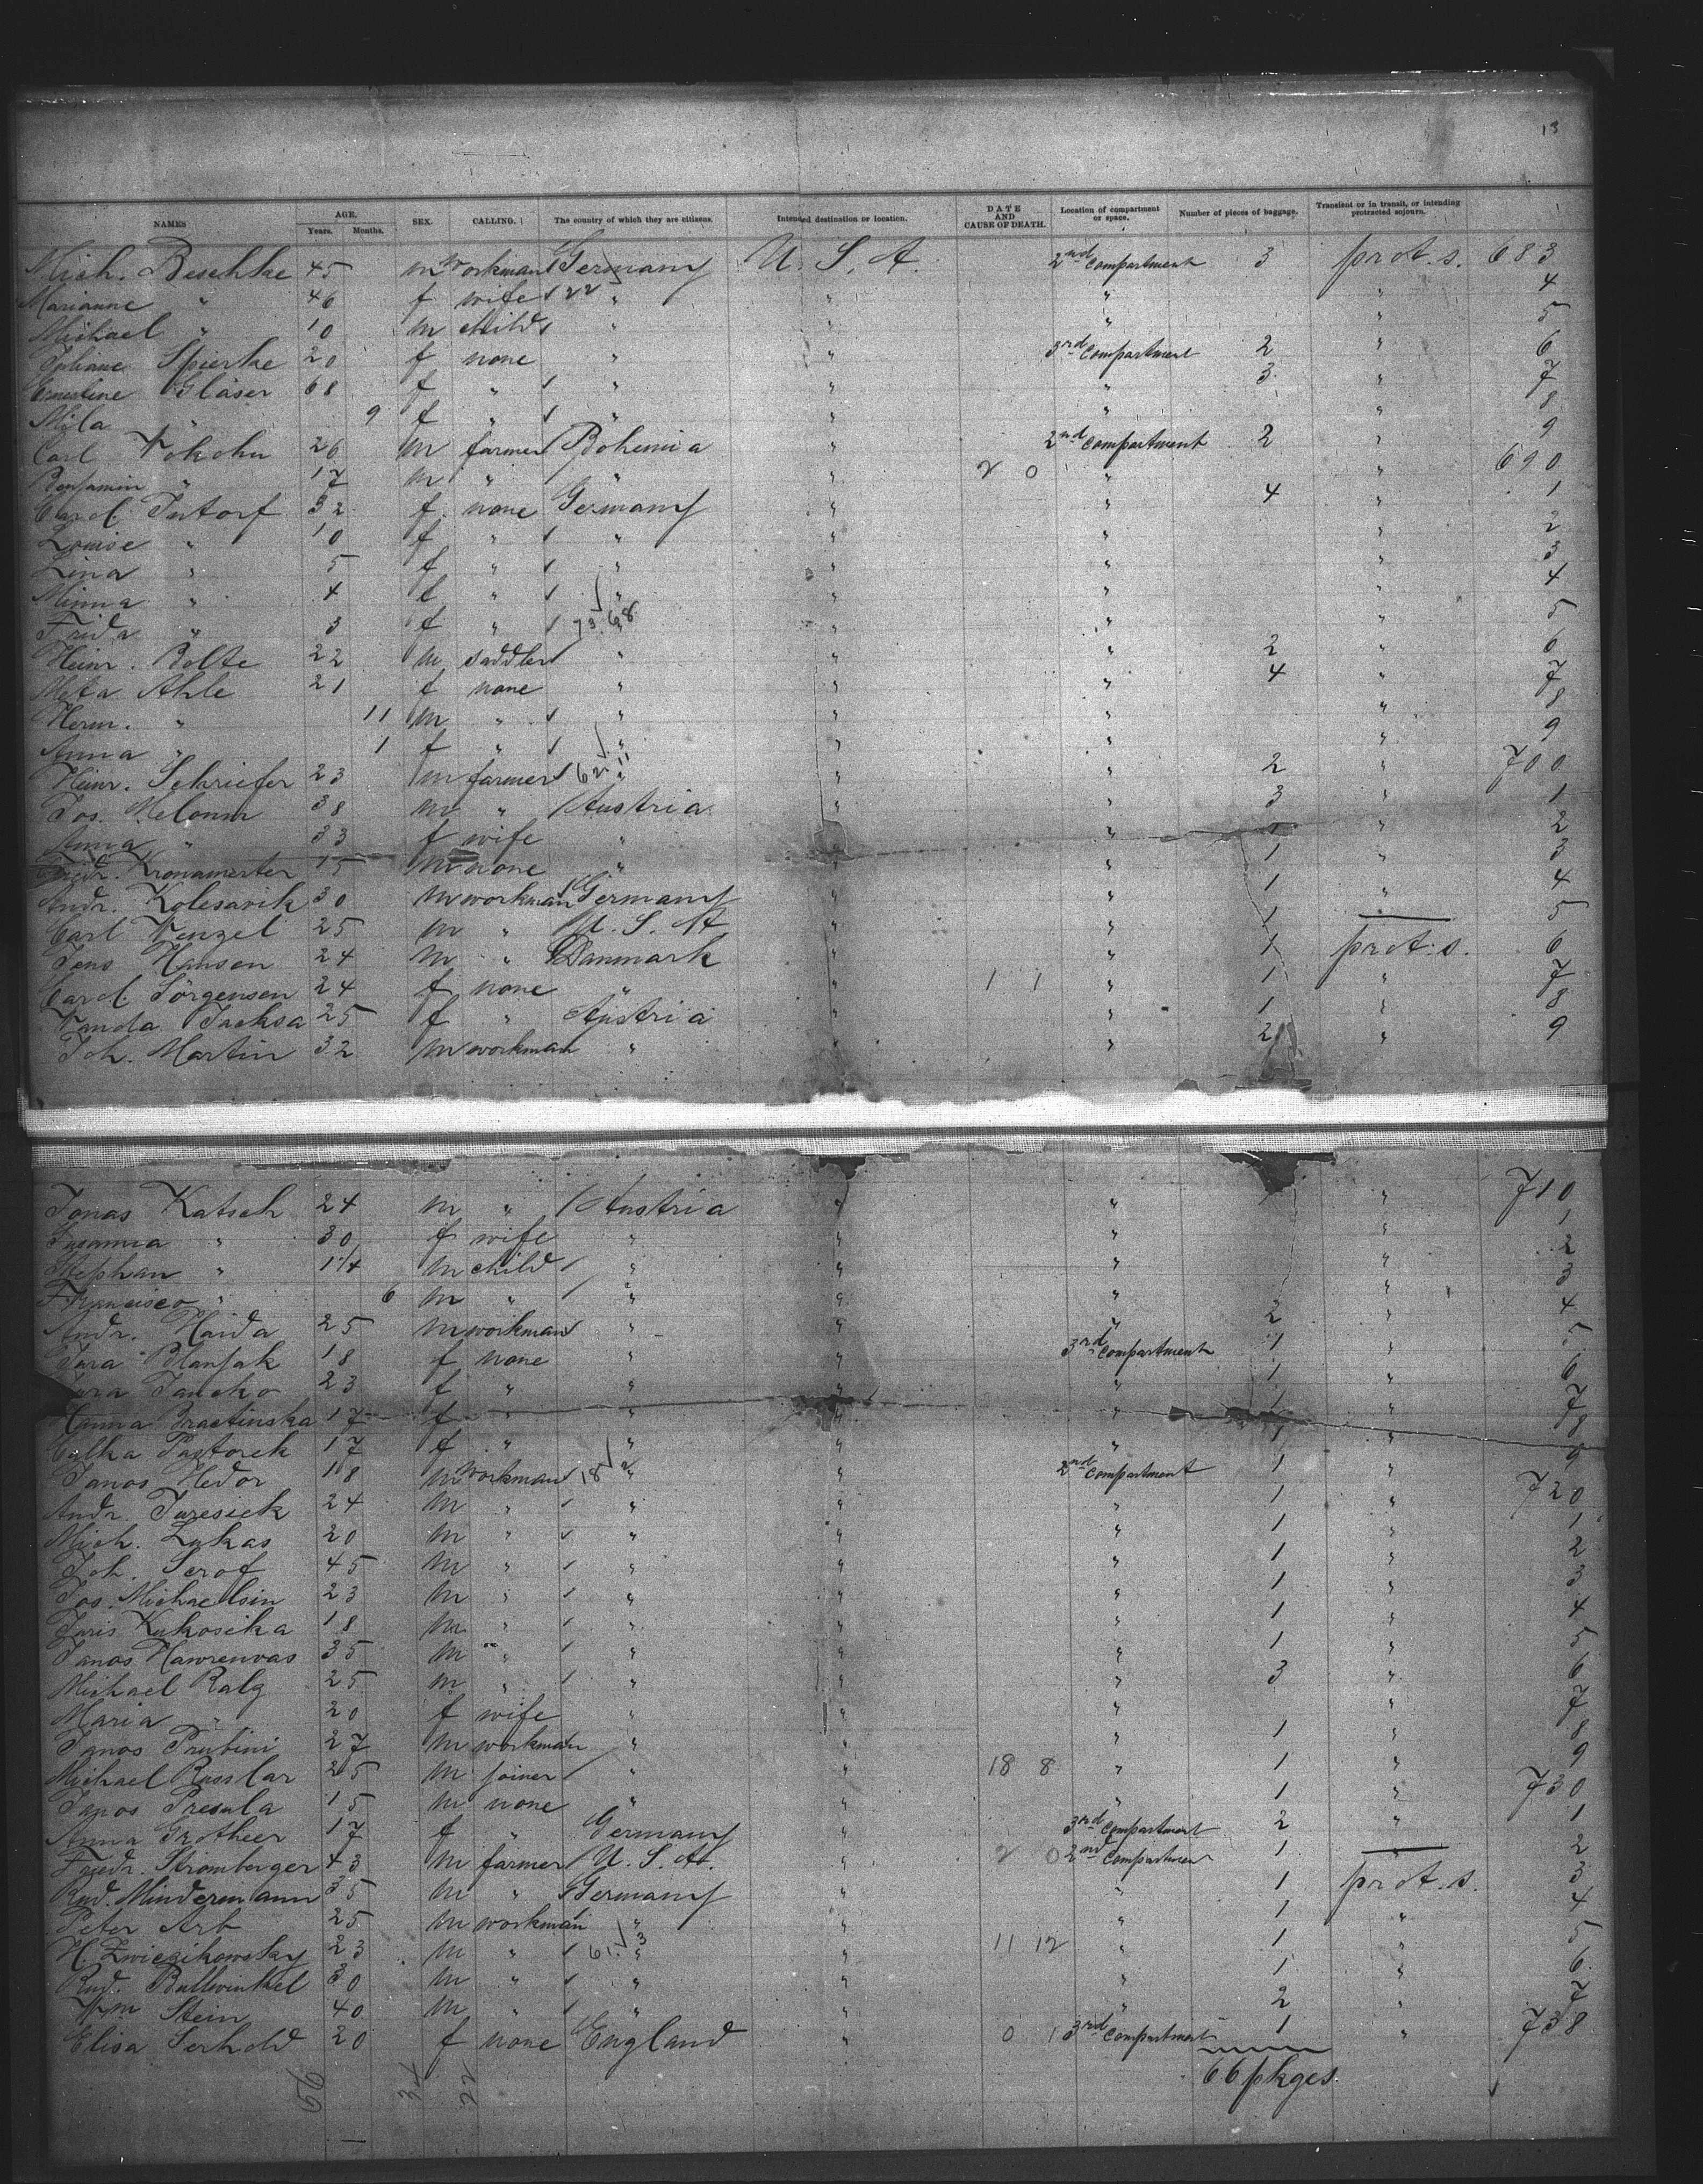 13
NAMES AGE. Years. Months. SEX. CALLING. The country of which they are citizens. Intended destination or location. DATE AND CAUSE OF DEATH. Location of compartment or space. Number of pieces of baggage. Transient or in transit, or intending protracted sojourn.
Mich. Beschke 45 m Workman Germany U. S. A. 2nd compartment 3 prot. s. 683
Marianne " 46 f wife 22 " " " " 4
Michael " 10 m child " " " " 5
Juliane Spierke 20 f none " " 3rd compartment 2 " 6
Ernestine Gläser 68 f " " " " 3 " 7
Mila " 9 f " " " " " 8
Carl Vokoku 26 m farmer Bohemia " 2nd compartment 2 " 9
Benjamin " 17 m " " " 2 0 " " 690
Carol. Tatorf 32 f none Germany " " 4 " 1
Louise " 10 f " " " " 2
Lina " 5 f " " " " " 3
Minna " 4 f " " " " " 4
Frida " 3 f " 73.68 " " " " 5
Heinr. Bolte 22 m saddler " " " 2 " 6
Meta Ahle 21 f none " " " 4 " 7
Herm. " 11 m " " " " " 8
Anna " 1 f " " " " " 9
Heinr. Schriefer 23 m farmer 62 11 " " " 2 " 700
Jos. Melonur 38 m " Austria " " 3 " 1
Anna " 33 f wife " " " 1 " 2
Friedr. Kronamerter 15 m none " " " 1 " 3
Andr. Kolesarik 30 m workman Germany " " 1 " 4
Carl Venzel 25 m " U. S. A " " 1 — 5
Jens Hansen 24 m " Danmark " " 1 prot. s. 6
Carol. Jörgensen 24 f none " " 1 1 " 1 " 7
Vanda Jacksa 25 f " Austria " " 1 " 8
Joh. Martin 32 m workman " " " 2 " 9
Jonas Katsch 24 m " Austria " " " 710
Susanna " 30 f wife " " " " 1
Stephan " 1 1/4 m child " " " " 2
Francisco " 6 m " " " " " 3
Andr. Haida 25 m workman " " " 2 " 4
Jura Blanjak 18 f none " " 3rd compartment 1 " 5
Jura Jancko 23 f " " " " 1 " 6
Hanna Bractinska 17 f " " " " 1 " 7
Calka Pastorek 17 f " " " " 1 " 8
Janos Hedor 18 m Workman 18 2 " " 2nd compartment 1 " 9
Andr. Juresick 24 m " " " " 1 " 720
Mich. Lukas 20 m " " " " 1 " 1
Joh. Serof 45 m " " " " 1 " 2
Jos. Michaelsin 23 m " " " " 1 " 3
Juris Kukosika 18 m " " " " 1 " 4
Janos Hawrenvas 35 m " " " " 1 " 5
Michael Ralg 25 m " " " " 3 " 6
Maria " 20 f wife " " " " 7
Janos Prubini 27 m workman " " " 1 " 8
Michael Russlar 25 m joiner " " 18 8 " 1 " 9
Janos Presula 15 m none " " " 1 " 730
Anna Grotheer 17 f " Germany " 3rd compartment 2 " 1
Friedr. Stromberger 43 m farmer U. S. A. " 2 0 2nd compartment 1 " 2
Rud. Mindermann 35 m " Germany " " 1 prot. s. 3
Peter Arb 25 m workman " " " 1 " 4
H. Zwiezikowsky 23 m " 61. 3 " " 11 12 " 1 " 5
Rud. Bullwinkel 30 m " " " " 1 " 6
Wm Stein 40 m " " " " 2 " 7
Elisa Serhold 20 f none England " 0 1 3rd compartment 1 " 738
66 pkges
56 34 22